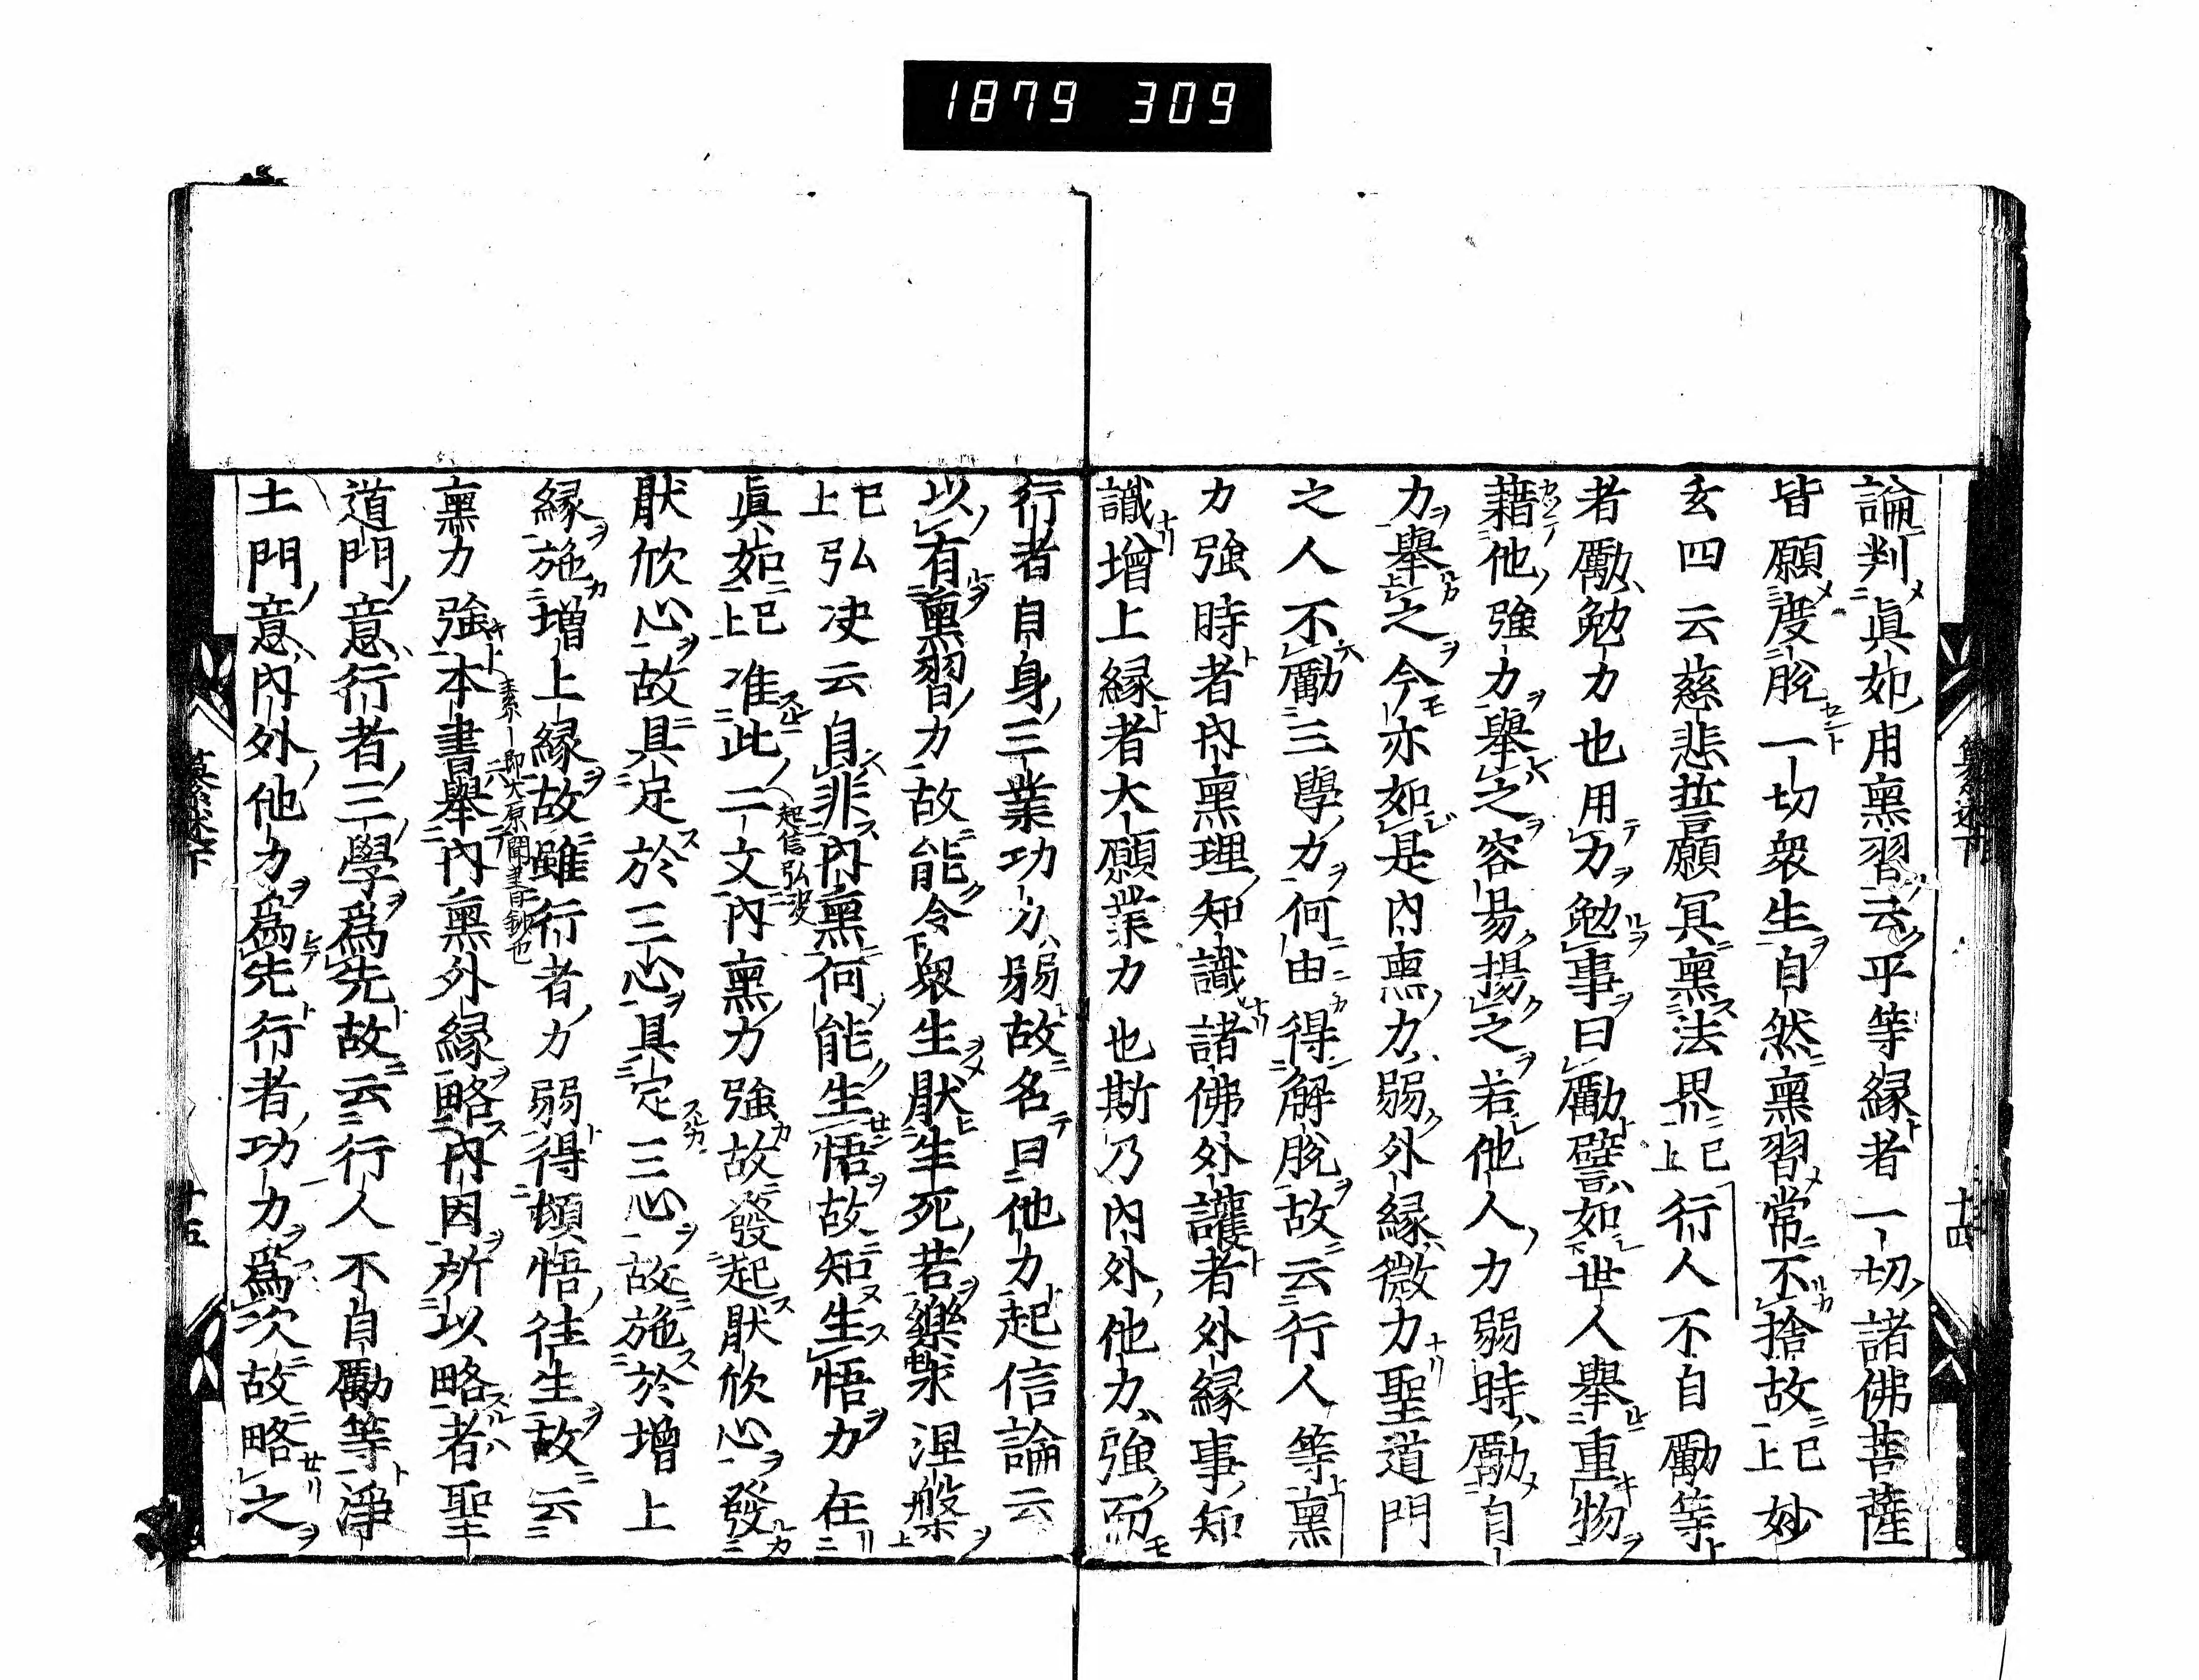 1879 309
論判眞如用熏習云平等縁者一切諸佛菩薩
皆願度脫一切衆生自然熏習常不捨故已上妙
玄四云慈悲誓願冥熏法界已上行人不自勵等
者勵勉力也用力勉事曰勵譬如世人舉重物
藉他強力舉之容易揚之若他人力弱時勵自
力舉之今亦如是內熏力弱外縁微力聖道門
之人不勵三學力何由得解脫故云行人等熏
力強時者內熏理知識諸佛外護者外縁事知
識增上縁者大願業力也斯乃內外他力強而
十四
行者自身三業功力弱故名曰他力起信論云
以有熏習力故能令衆生厭生死若樂求涅槃
已上弘决云自非內熏何能生悟故知生悟力在
眞如已上准此二文內熏力強故發起厭欣心發
起信弘决
厭欣心故具足於三心具定三心故施於增上
縁施增上縁故雖行者力弱得頓悟往生故云
熏力強本書舉內熏外縁略內因所以略者聖
道門意行者三學爲先故云行人不自勵等淨
土門意內外他力爲先行者功力爲次故略之
十五